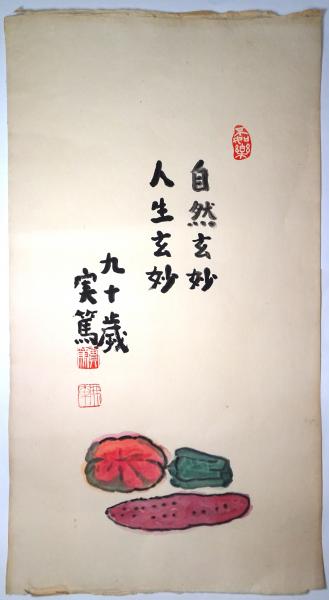 自然玄妙
人生玄妙
九十歳
実篤